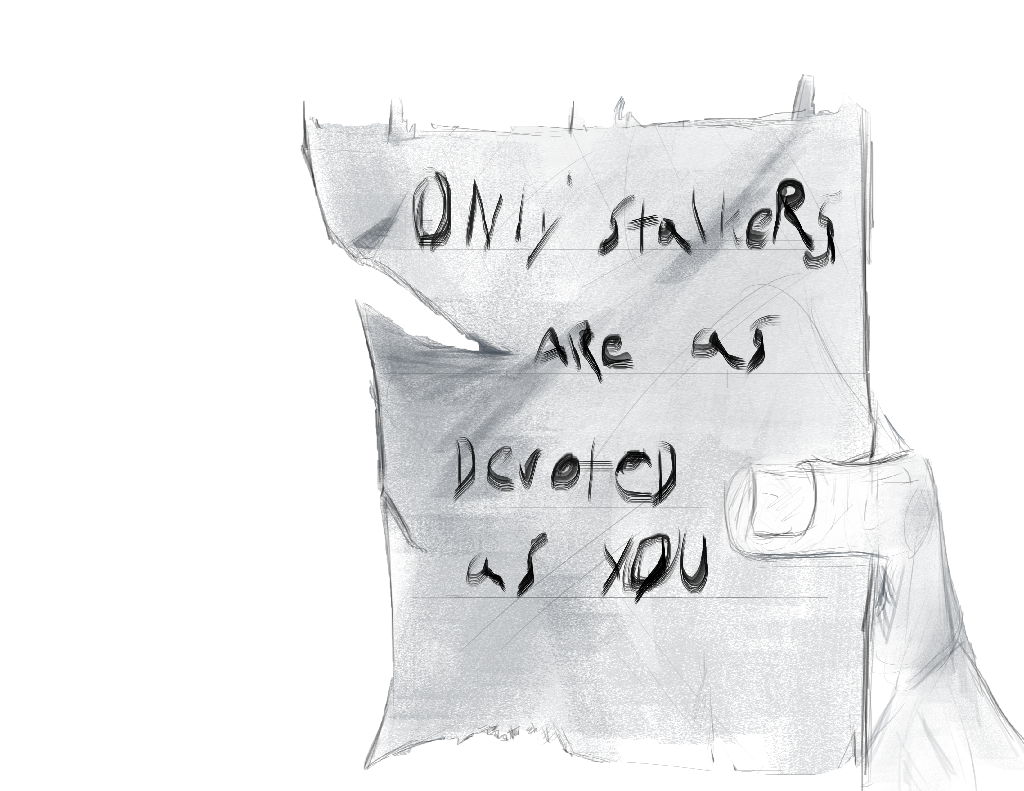 ONly stalkeRs
ARe as
Devoted
as YOU